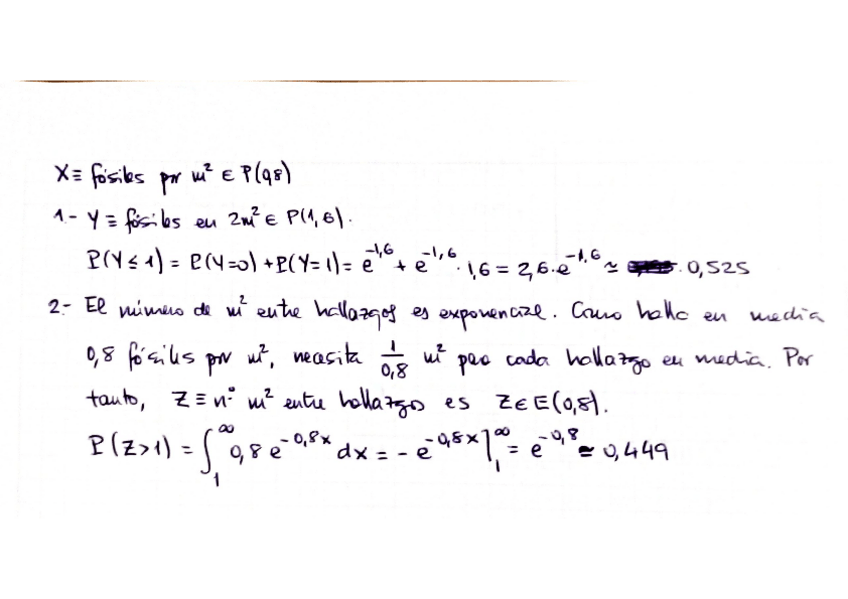 X ≡ fósiles por m² ∈ P(0,8)
1.- Y ≡ fósiles en 2m² ∈ P(1,6).
P(Y ≤ 1) = P(Y=0) + P(Y=1) = e^{-1,6} + e^{-1,6} · 1,6 = 2,6·e^{-1,6} ≃ 0,525
2.- El número de m² entre hallazgos es exponencial. Como halla en media
0,8 fósiles por m², necesita 1/0,8 m² para cada hallazgo en media. Por
tanto, Z ≡ nº m² entre hallazgos es Z ∈ E(0,8).
P(Z>1) = ∫_1^∞ 0,8 e^{-0,8x} dx = -e^{-0,8x}]_1^∞ = e^{-0,8} ≃ 0,449